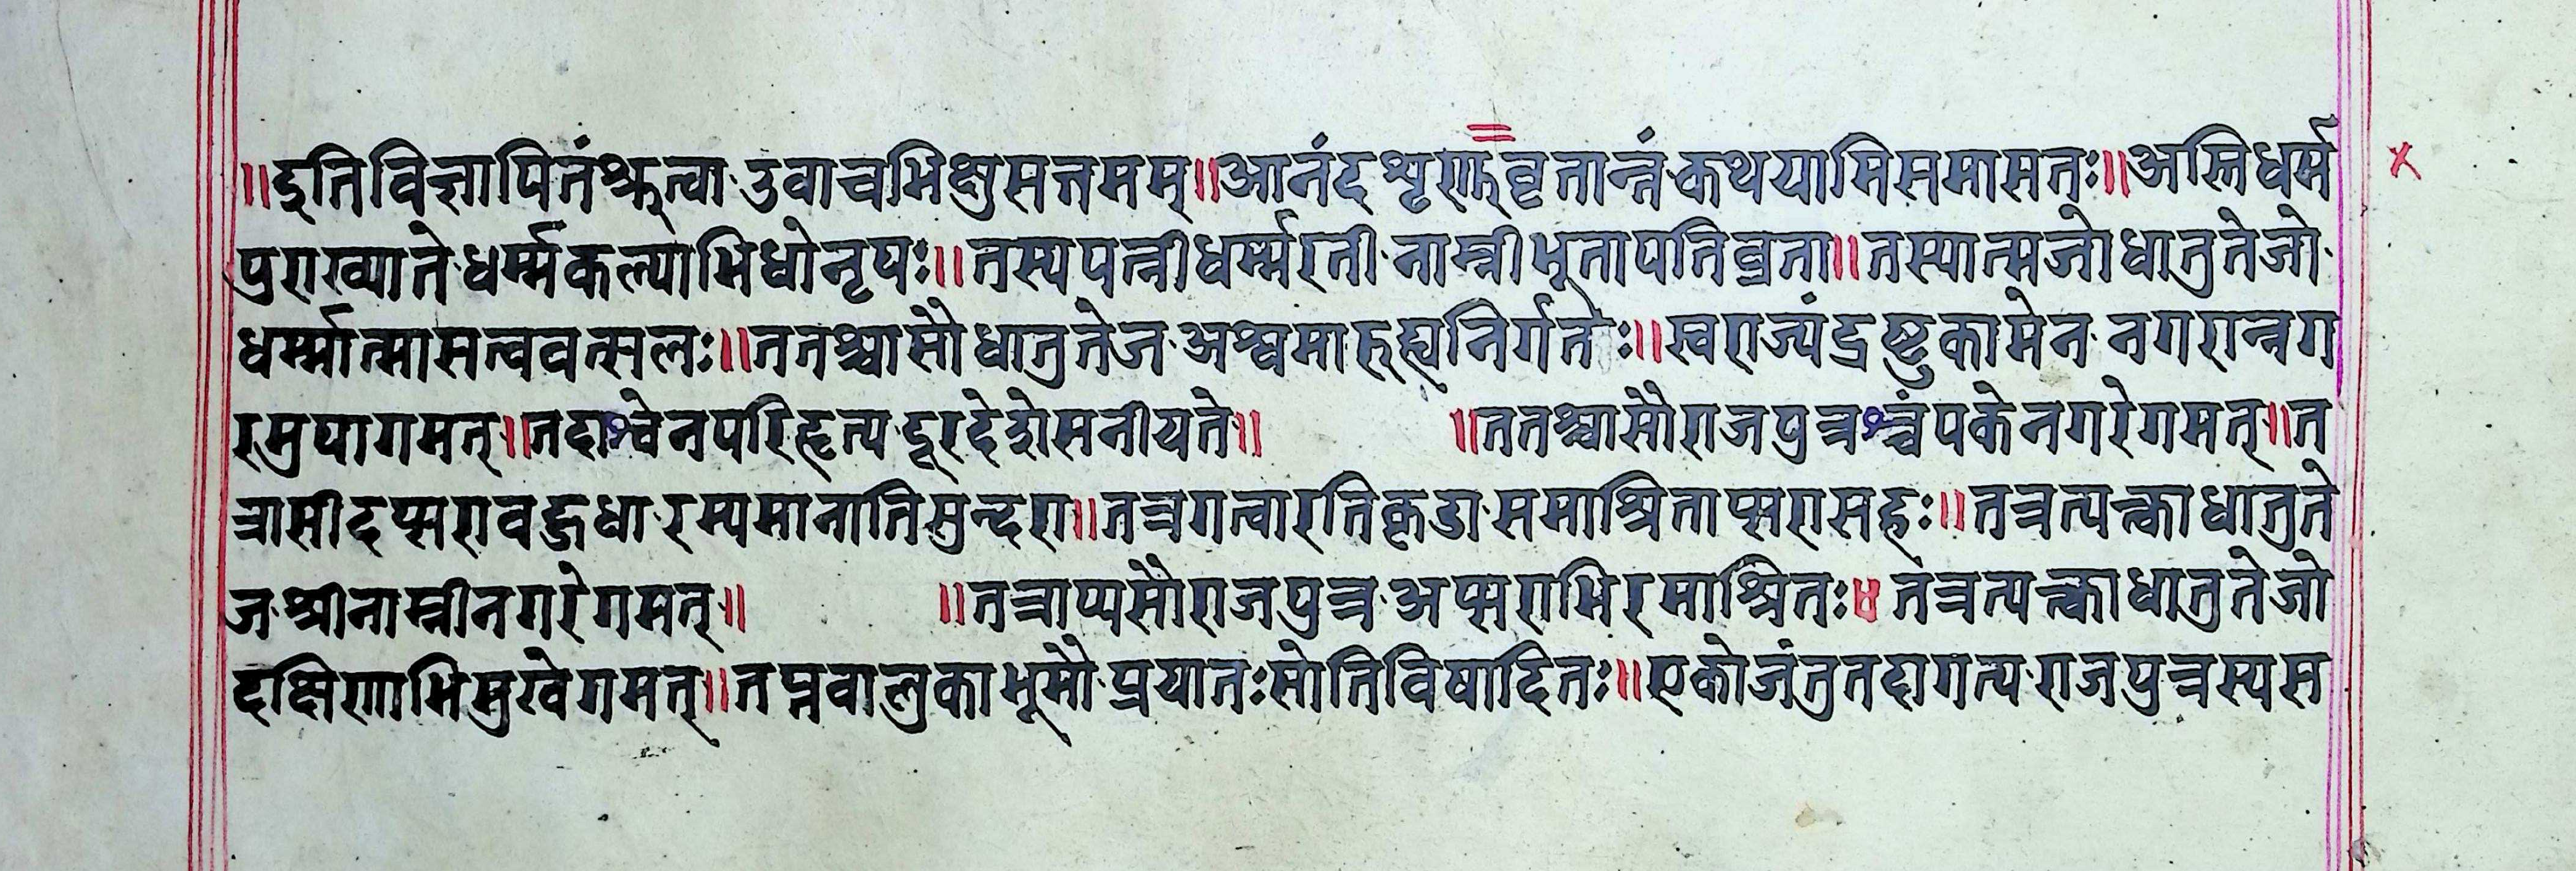 ॥इति विज्ञापितं श्रुत्वा उवाच भिक्षुसत्तमम्॥आनंद शृणु वृतान्तं कथयामि समासतः॥अस्ति धर्म
पुराख्याते धर्म्मकल्याभिधो नृपः॥तस्य पत्नी धर्म्मरती नाम्नी भूता पतिव्रता॥तस्यात्मजो धातुतेजो
धर्म्मात्मा सत्ववत्सलः॥ततश्चासौ धातुतेज अश्वमारुह्य निर्गतेः॥स्वराज्यं द्रष्टुकामेन नगरान्नग
रमुपागमत्॥तदाश्वेन परिहृत्य दूरदेशे स नीयते॥ ॥ततश्चासौ राजपुत्रश्चंपके नगरे गमत्॥त
त्रासीदप्सरा वद्धधा रम्यमानातिसुन्दरा॥तत्र गत्वा रतिकृडा समाश्रिताप्सरा सहः॥तत्र त्यक्त्वा धातुते
ज श्रीनाम्नी नगरे गमत्॥ ॥तत्राप्यसौ राजपुत्र अप्सराभिरमाश्रितः४ तत्र त्यक्त्वा धातुतेजो
दक्षिणाभिमुखे गमत्॥तप्तवालुकाभूमौ प्रयातः सोति विषादितः॥एको जंतु तदागत्य राजपुत्रस्य स